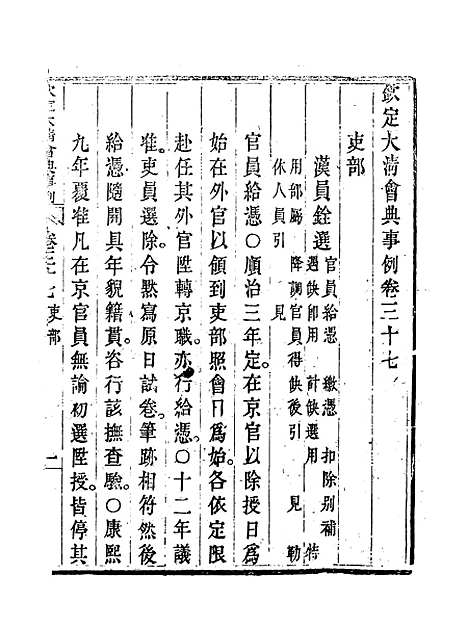 欽定大清會典事例卷三十七
吏部
漢員銓選 官員給憑 繳憑 扣除别補 特
遇缺即用 計缺選用
用部屬 降調官員得缺後引 見 勒
休人員引 見
官員給憑○順治三年定在京官以除授日爲
始在外官以領到吏部照會日爲始各依定限
赴任其外官陞轉京職亦行給憑○十二年議
准吏員選除令默寫原日試卷筆跡相符然後
給憑隨開具年貌籍貫咨行該撫查驗○康熙
九年覆准凡在京官員無論初選陞授皆停其
欽定大清會典事例 卷三十七 吏部 一